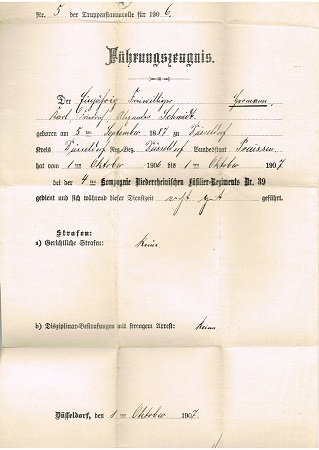 Nr. 5 der Truppenstammrolle für 1906.
Führungszeugnis.
Der Einjährig Freiwillige Hermann
Karl Friedrich Alexander Schmidt
geboren am 5 ten September 1887 zu Düsseldorf
Kreis Düsseldorf Reg.-Bez. Düsseldorf Bundesstaat Preussen
hat vom 1 ten Oktober 1906 bis 1 ten Oktober 1907
bei der 4 ten Kompagnie Niederrheinischen Füsilier-Regiments Nr. 39
gedient und sich während dieser Dienstzeit recht gut geführt.
Strafen:
a) Gerichtliche Strafen: Keine.
b) Disziplinar-Bestrafungen mit strengem Arrest: Keine
Düsseldorf, den 1 ten Oktober 1907.